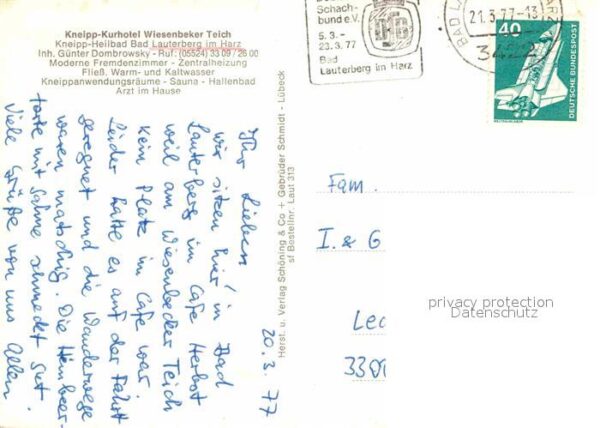 Kneipp-Kurhotel Wiesenbeker Teich
Kneipp-Heilbad Bad Lauterberg im Harz
Inh. Günter Dombrowsky - Ruf: (05524) 33 09 / 26 00
Moderne Fremdenzimmer - Zentralheizung
Fließ. Warm- und Kaltwasser
Kneippanwendungsräume - Sauna - Hallenbad
Arzt im Hause
20.3.77
Ihr Lieben
wir sitzen hier in Bad
Lauterberg im Cafe Herbst
weil am Wiesenbecker Teich
kein Platz im Cafe war.
Leider hatte es auf der Fahrt
geregnet und die Wanderwege
waren matschig. Die Himbeer-
torte mit Sahne schmeckt gut.
Viele Grüße von uns Allen
Herst. u. Verlag Schöning & Co + Gebrüder Schmidt - Lübeck
sf Bestellnr. Laut 313
Schach-
bund e.V.
5.3.-
23.3.77
Bad
Lauterberg im Harz
21.3.77-13
40
DEUTSCHE BUNDESPOST
Fam.
I. & G
privacy protection
Datenschutz